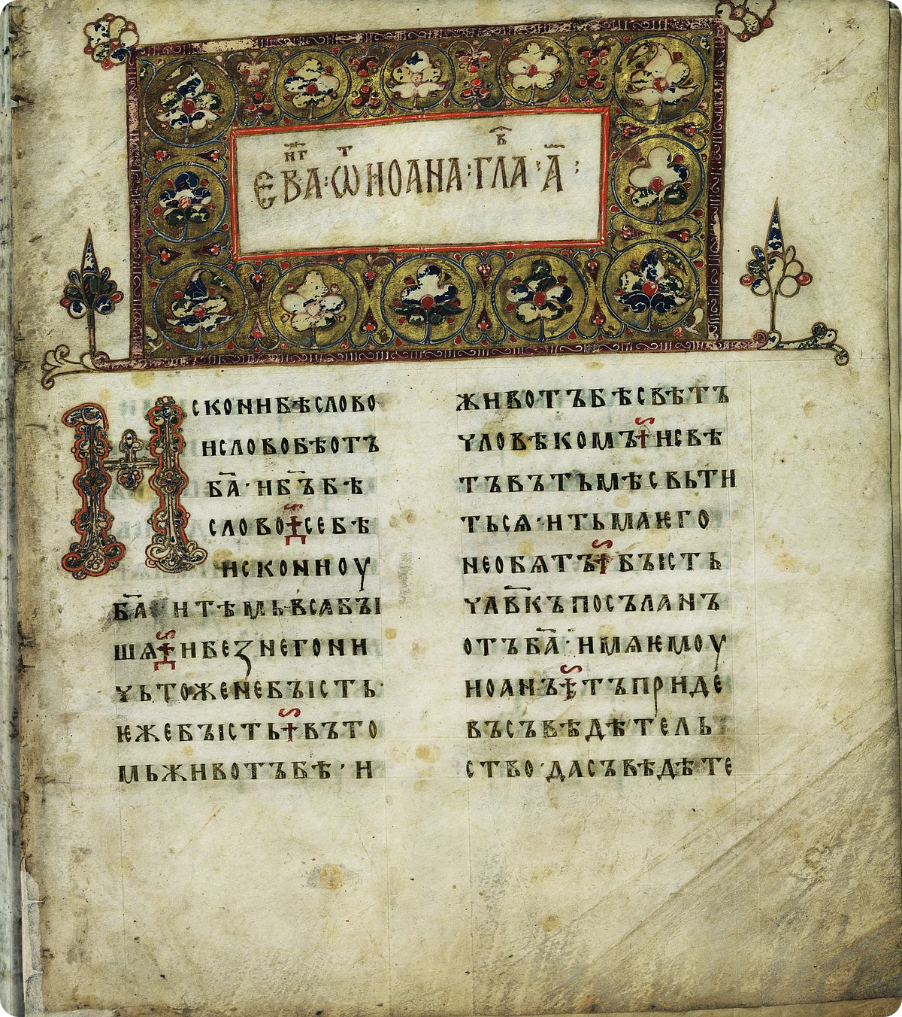 ЕВА҃НГ·Ѡ҃Т ИОАНА·ГЛАВ҃·А҃·
ИСКОНИБѢСЛОВО
ИСЛОВОБѢОТЪ
БА҃·ИБ҃ЪБѢ
СЛОВО СЕБѢ
ИСКОНИОУ
БА҃ ИТѢМЬВСѦБꙐ
ШѦ ИБЕЗНЕГОНИ
ЧЬТОЖЕНЕБЪІСТЬ·
ѤЖЕБЪІСТЬ ВЪТО
МЬЖИВОТЪБѢ·И
ЖИВОТЪБѢСВѢТЪ
ЧЛОВѢКОМЪ ИСВѢ
ТЪВЪТЬМѢСВЬТИ
ТЬСѦ·ИТЬМАѤГО
НЕОБѦТЪ БЪІСТЬ
ЧЛ҃ВКЪПОСЪЛАНЪ
ОТЪБА҃·ИМѦѤМОУ
ИОАНЪ ТЪПРИДЕ
ВЪСЪВѢДѢТЕЛЬ
СТВО·ДАСЪВѢДѢТЕ